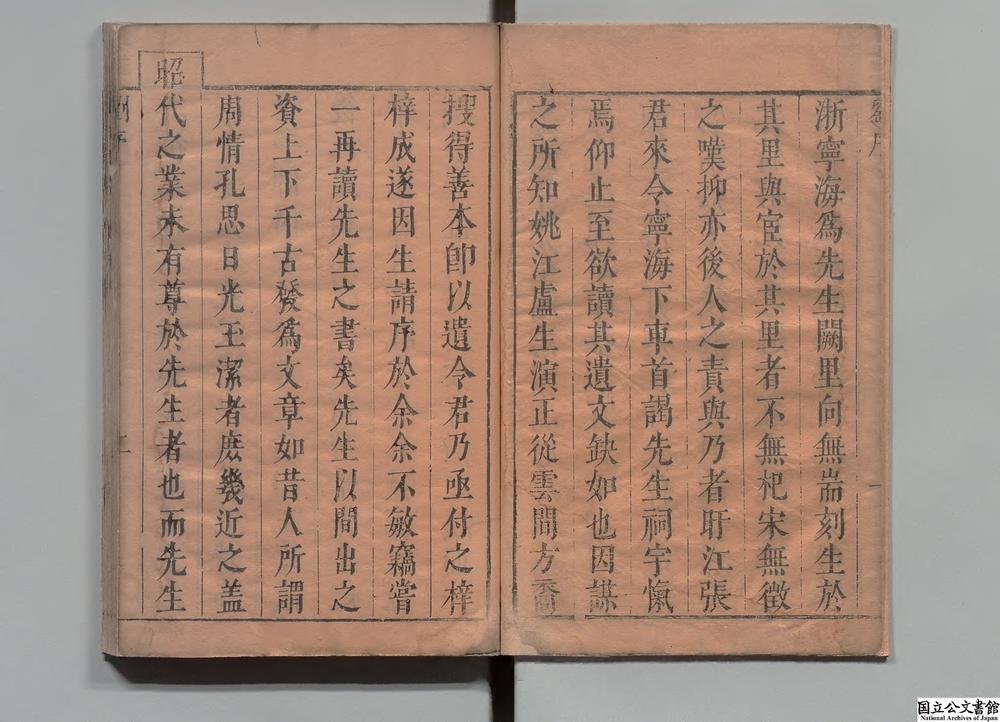 浙寧海爲先生闕里向無耑刻生於
其里與宦於其里者不無杞宋無徵
之嘆抑亦後人之責與乃者盱江張
君來令寧海下車首謁先生祠宇愾
焉仰止至欲讀其遺文缺如也因謀
之所知姚江盧生演正從雲間方裔
搜得善本卽以遺令君乃亟付之梓
梓成遂因生請序於余余不敏竊嘗
一再讀先生之書矣先生以間出之
資上下千古發爲文章如昔人所謂
周情孔思日光玉潔者庶幾近之盖
昭
代之業未有尊於先生者也而先生
国立公文書館
National Archives of Japan